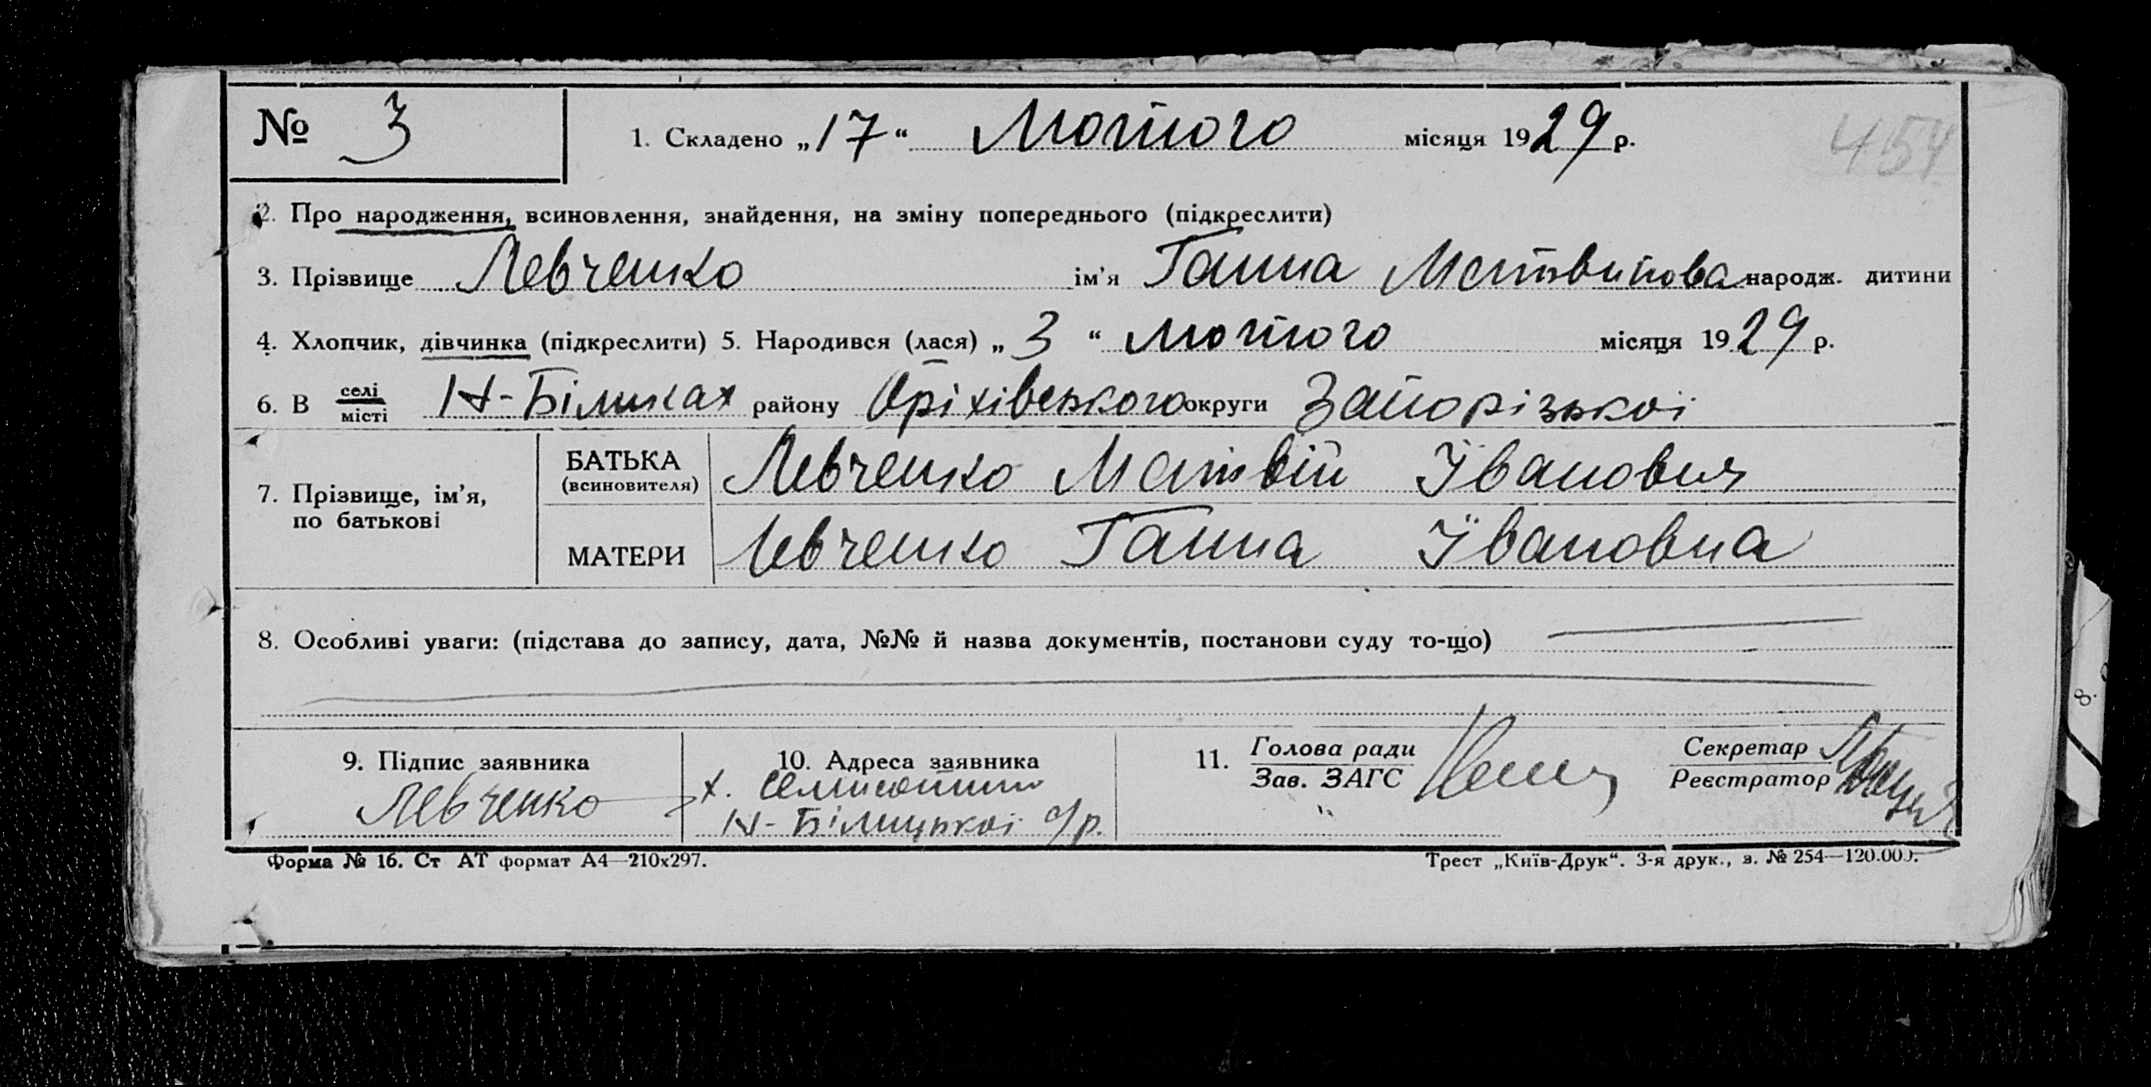 № 3 1. Складено „17“ Лютого місяця 1929 р. 454
2. Про народження, всиновлення, знайдення, на зміну попереднього (підкреслити)
3. Прізвище Левченко ім’я Ганна Матвиїова народж. дитини
4. Хлопчик, дівчинка (підкреслити) 5. Народився (лася) „3“ лютого місяця 1929 р.
6. В селі/місті Н-Біликах району Оріхівського округи Запорізької
7. Прізвище, ім’я, по батькові
БАТЬКА (всиновителя) Левченко Матвій Їванович
МАТЕРИ Левченко Ганна Ївановна
8. Особливі уваги: (підстава до запису, дата, №№ й назва документів, постанови суду то-що)
9. Підпис заявника 10. Адреса заявника 11. Голова ради/Зав. ЗАГС Секретар/Реєстратор
Левченко х.
Н-Білицької с/р.
Форма № 16. Ст АТ формат А4—210х297. Трест „Київ-Друк“. 3-я друк., з. № 254—120.000.
8.